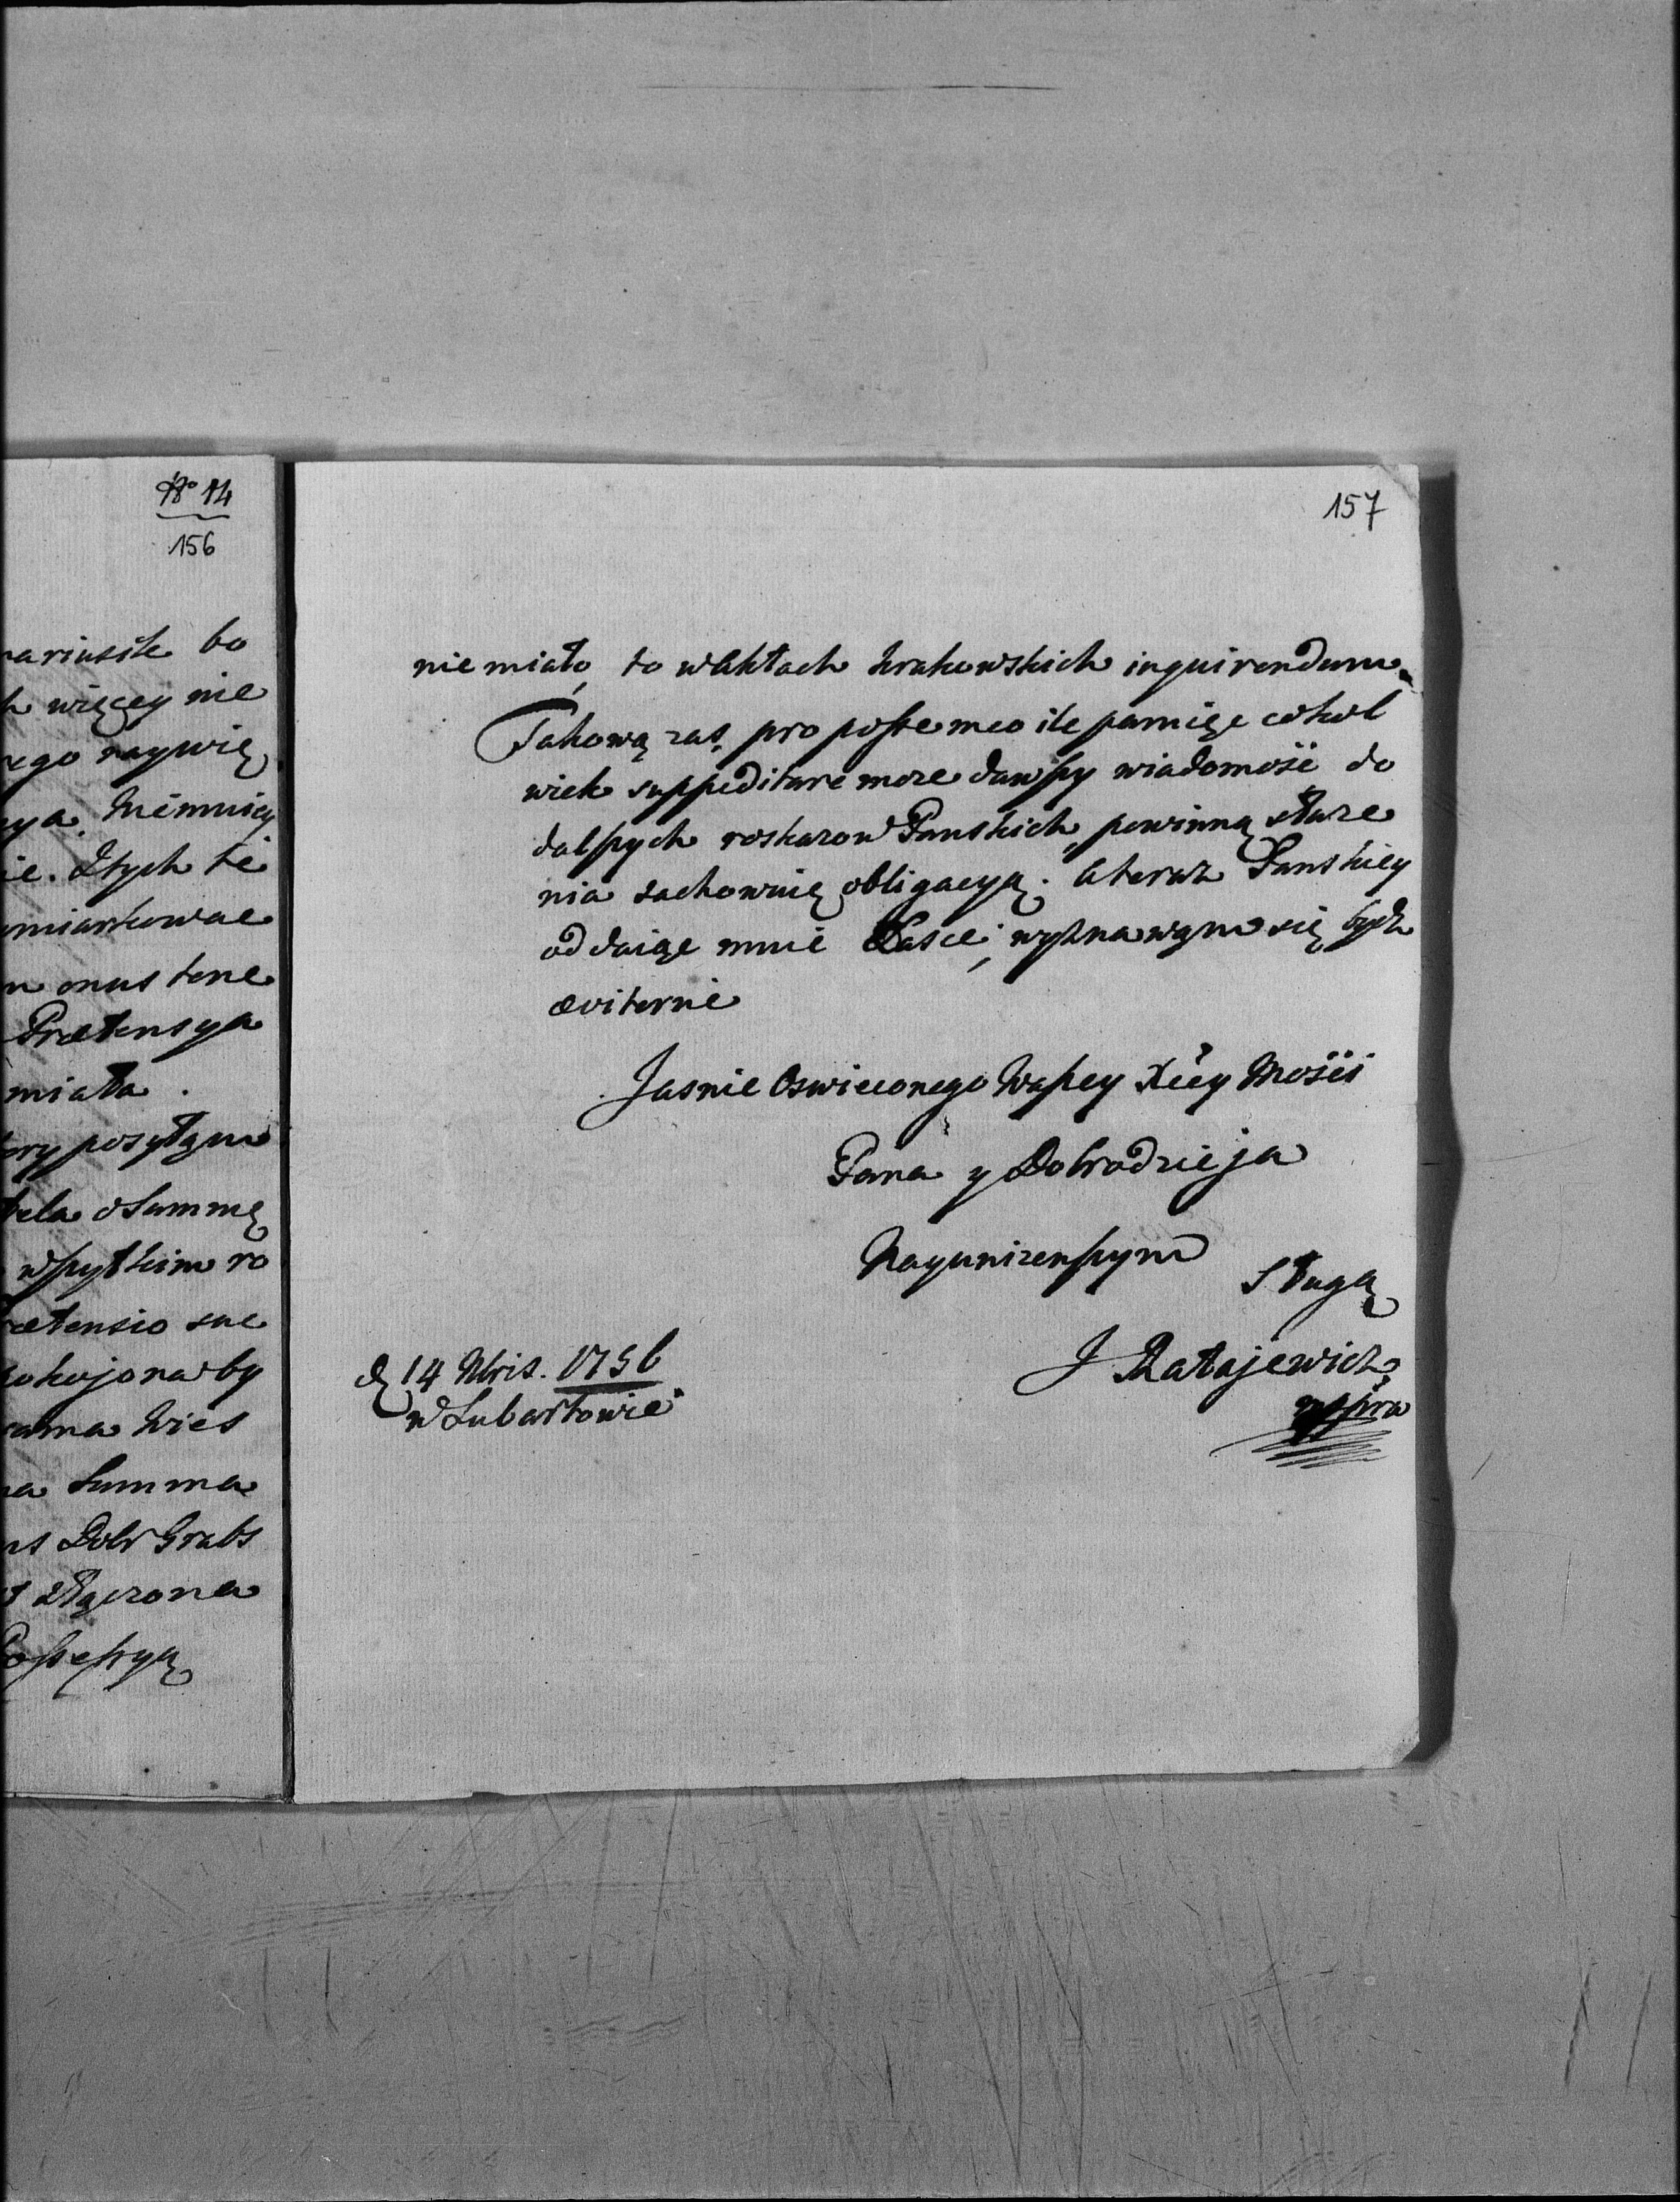 No 14
156
nariusik bo
h więcey nie
ego naywię
ya. Niemniey
ie. Ztych te
miarkowac
n onus tene
Prætensya
miała.
ory posyłąm
tela o Summę
wszytkim ro
rætensio sue
kokojona by
ama Wies
na Summa
Dobr Grabs
złączona
Possessyą
157
nie miało, to w Aktach krakowskich inquirendum.
Takową zas, pro posse meo ile pamięc cokol
wiek suppeditare moze dawszy wiadomość do
dalszych roskazow Panskich, powinną stare
nia zachowuię obligacyą. A teraz Panskiey
oddaiąc mnie Łasce, wyznawąm się bydz
æviternie
Jasnie Oswieconego Waszey Xcey Mosci
Pana y Dobrodzieja
Nayunizenszym
Sługą
J Ratajewicz
mpria
d 14 Nbris. 1756
w Lubartowie